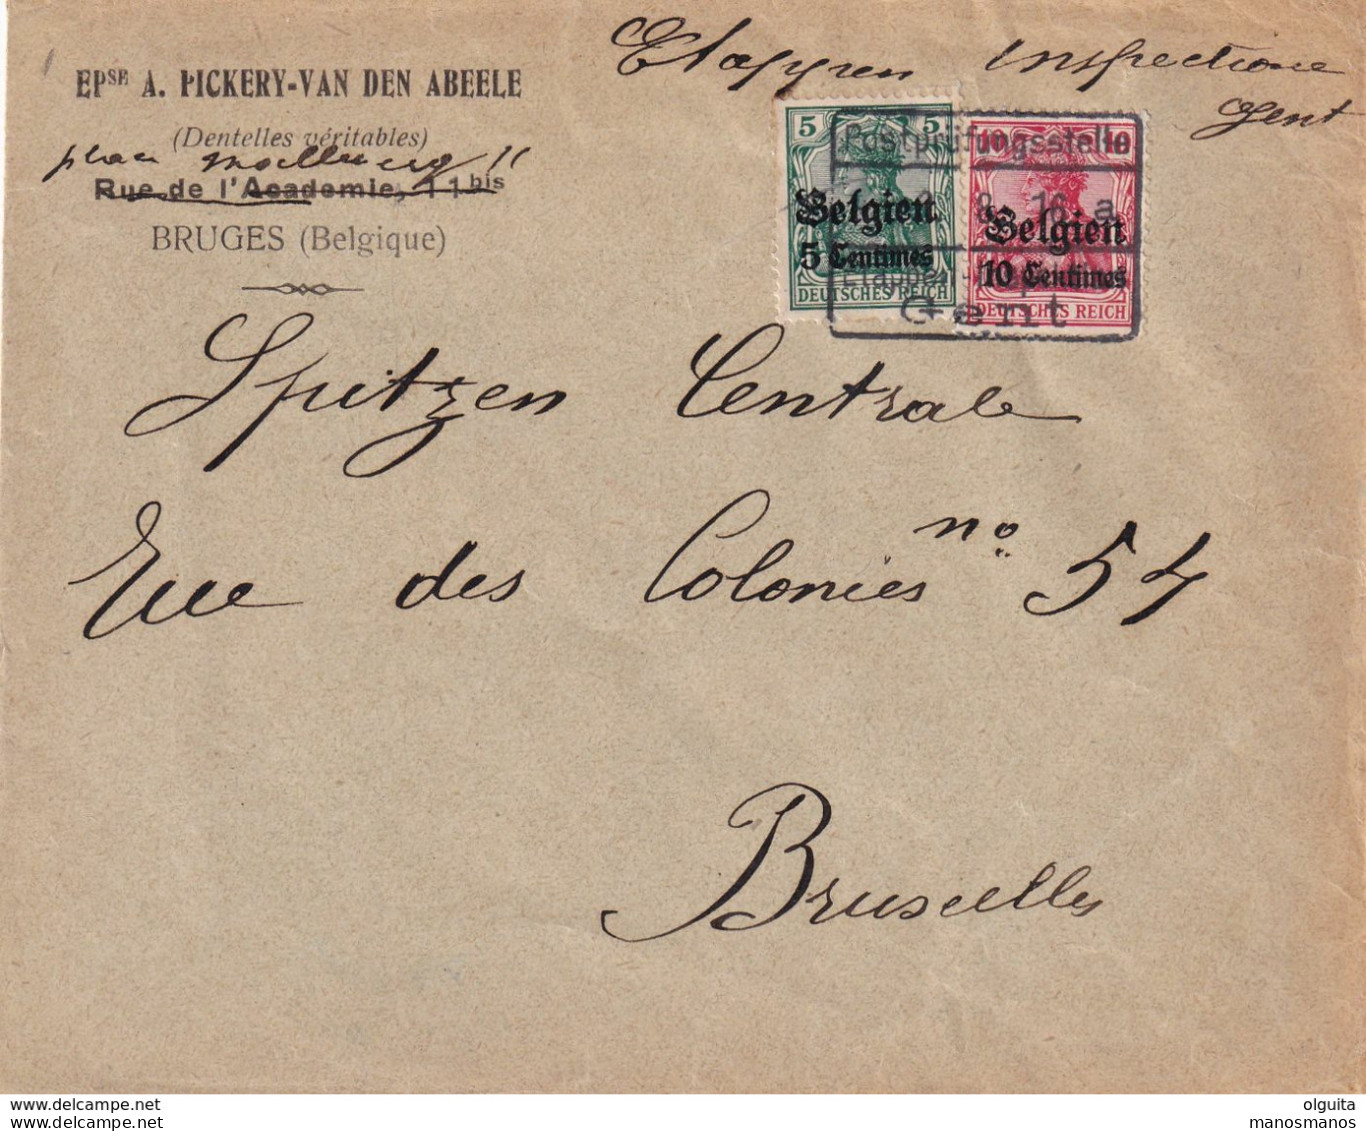 EPSE A. PICKERY-VAN DEN ABEELE
(Dentelles véritables)
place 11
Rue de l'Academie, 11bis
BRUGES (Belgique)
Etappen Inspectione
Gent
5 5
Belgien
5 Centimes
DEUTSCHES REICH
10 10
Belgien
10 Centimes
DEUTSCHES REICH
Postprüfungsstelle
8. 16. a
Gent
Spitzen Centrale
Rue des Colonies no 54
Bruxelles
olguita
manosmanos